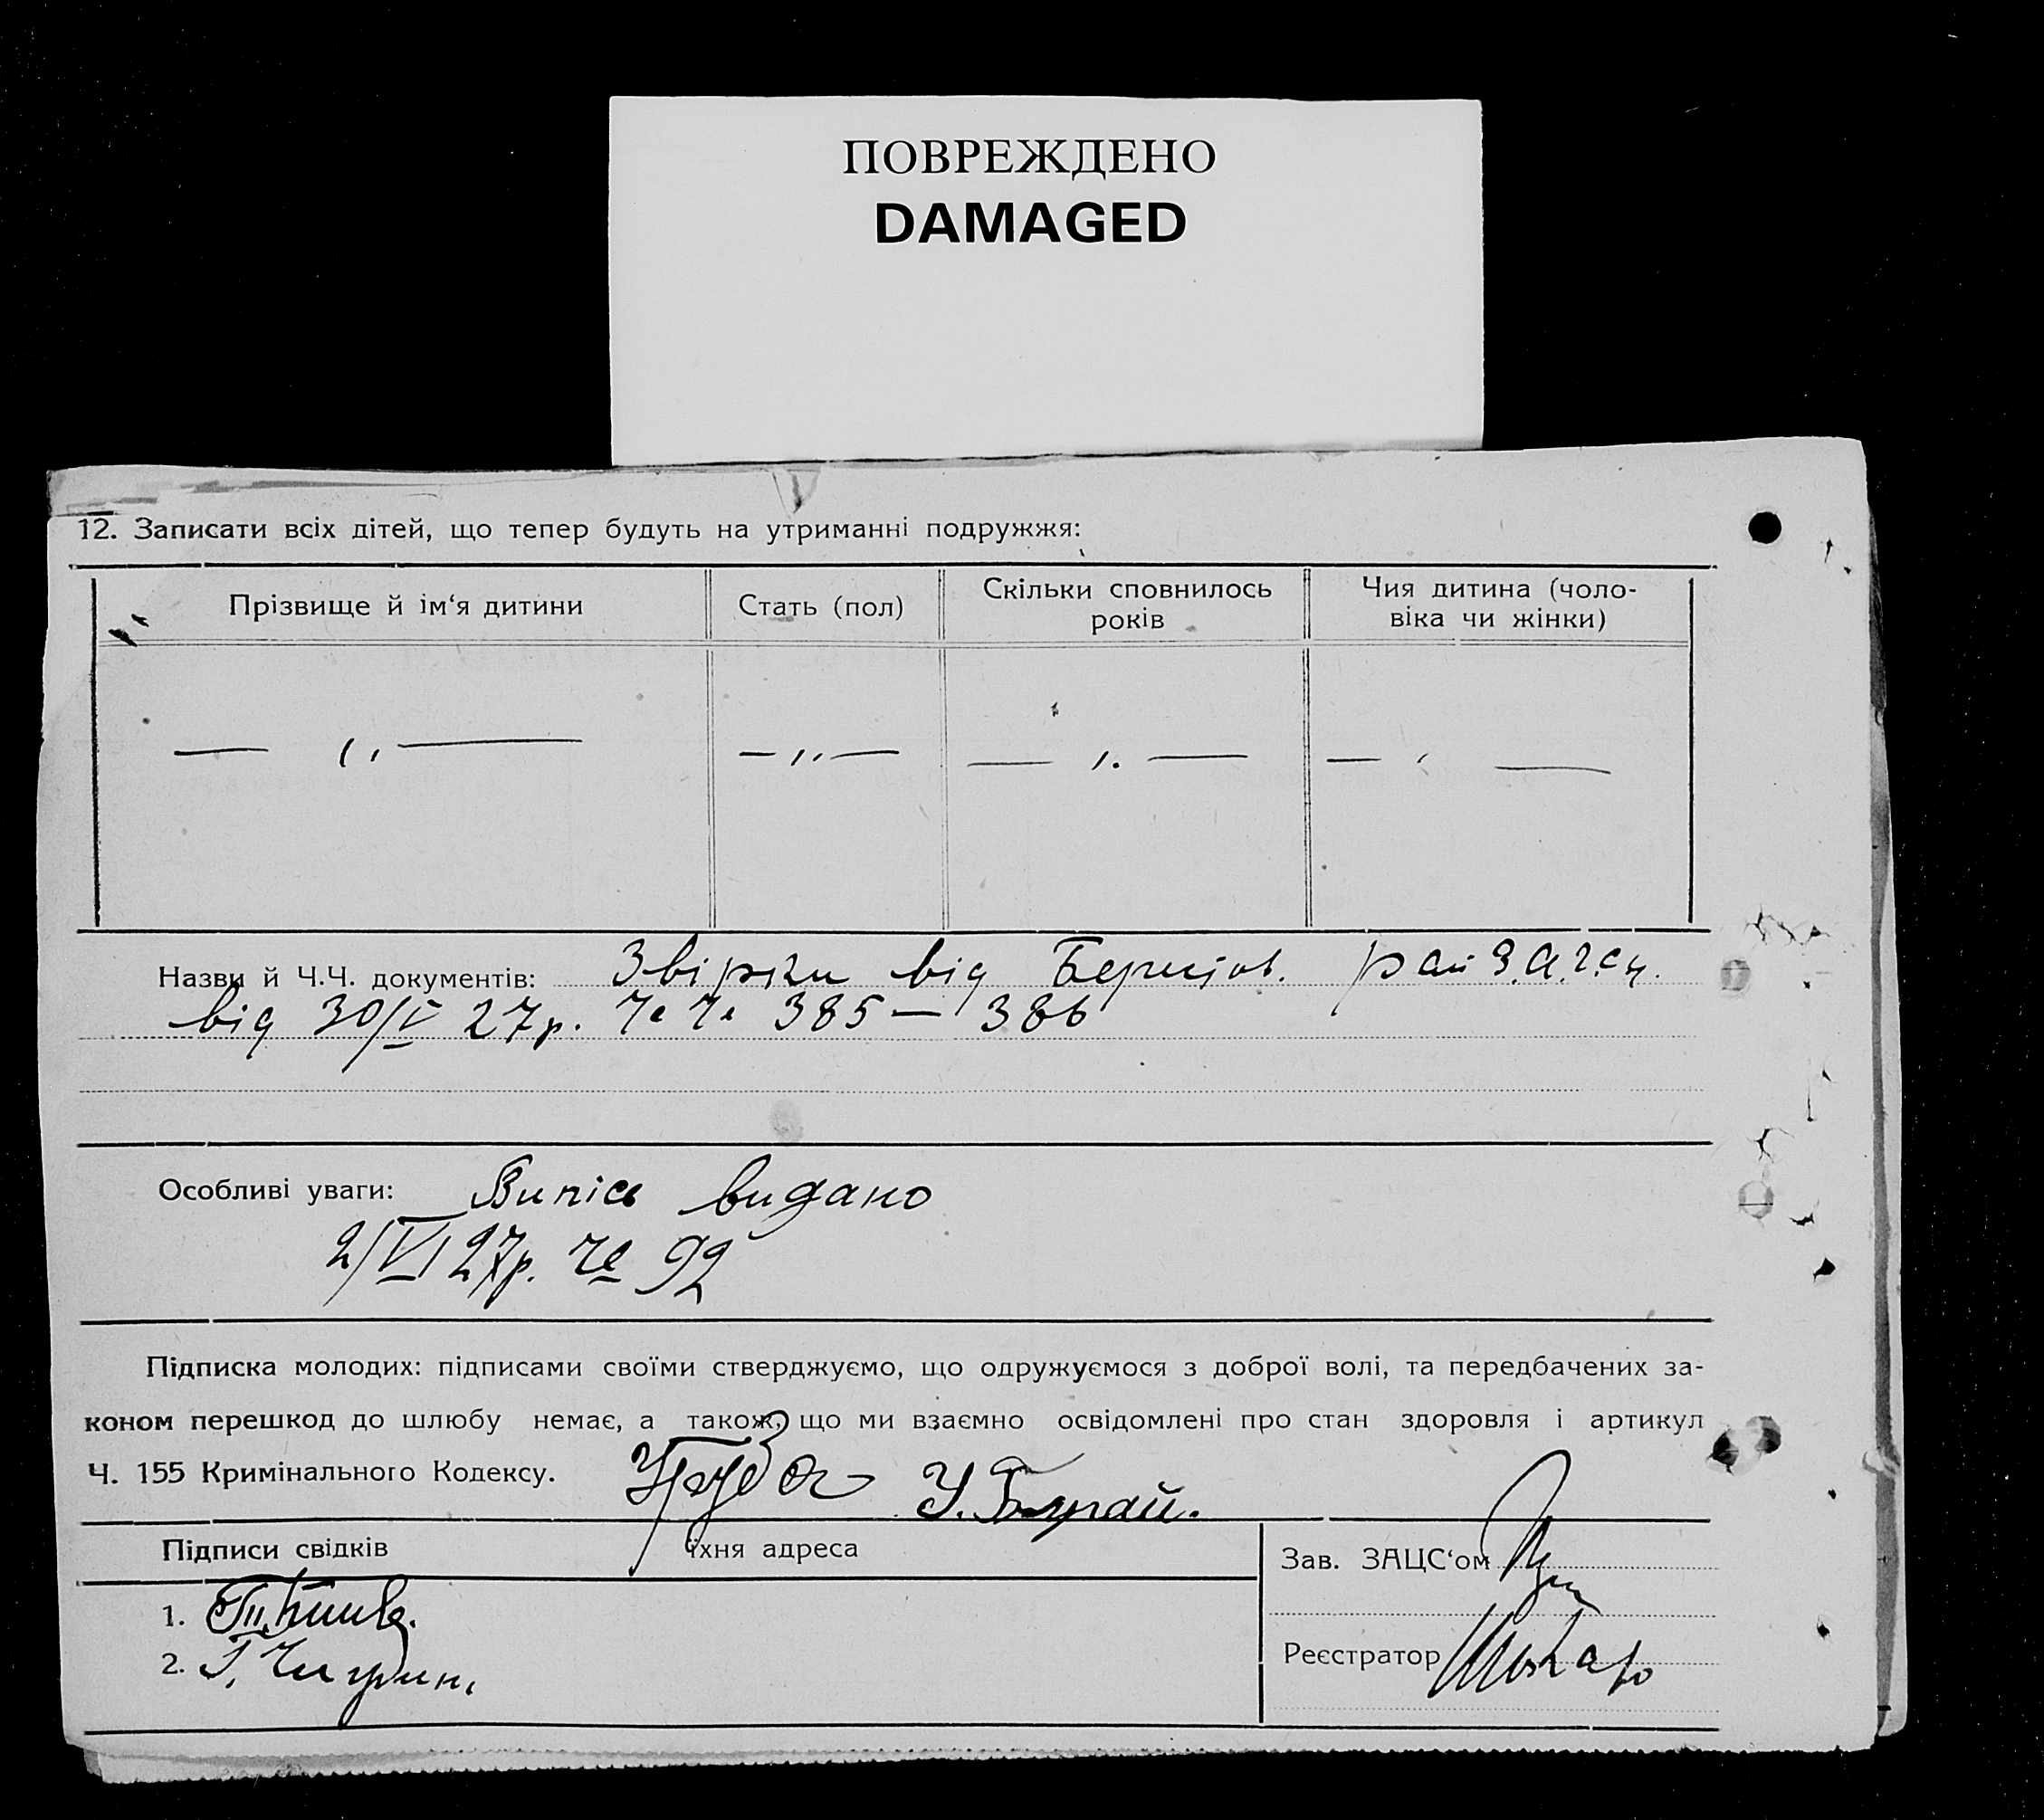 ПОВРЕЖДЕНО
DAMAGED
12. Записати всіх дітей, що тепер будуть на утриманні подружжя:
Прізвище й ім‘я дитини
Стать (пол)
Скільки сповнилось
років
Чия дитина (чоло-
віка чи жінки)
— ,, —
— ,, —
— ,, —
— ,, —
Назви й Ч.Ч. документів: Звірки від рай
від 30/V 27р. Че Че 385 — 386
Особливі уваги: Випісь видано
2/VI 27р. Че 92
Підписка молодих: підписами своїми стверджуємо, що одружуємося з доброї волі, та передбачених за-
коном перешкод до шлюбу немає, а також, що ми взаємно освідомлені про стан здоровля і артикул
Ч. 155 Кримінального Кодексу.
Підписи свідків
їхня адреса
Зав. ЗАЦС‘ом
1.
2.
Реєстратор